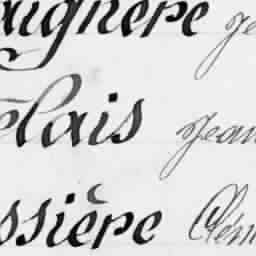 aignere je
elais Jean
ssière Clém